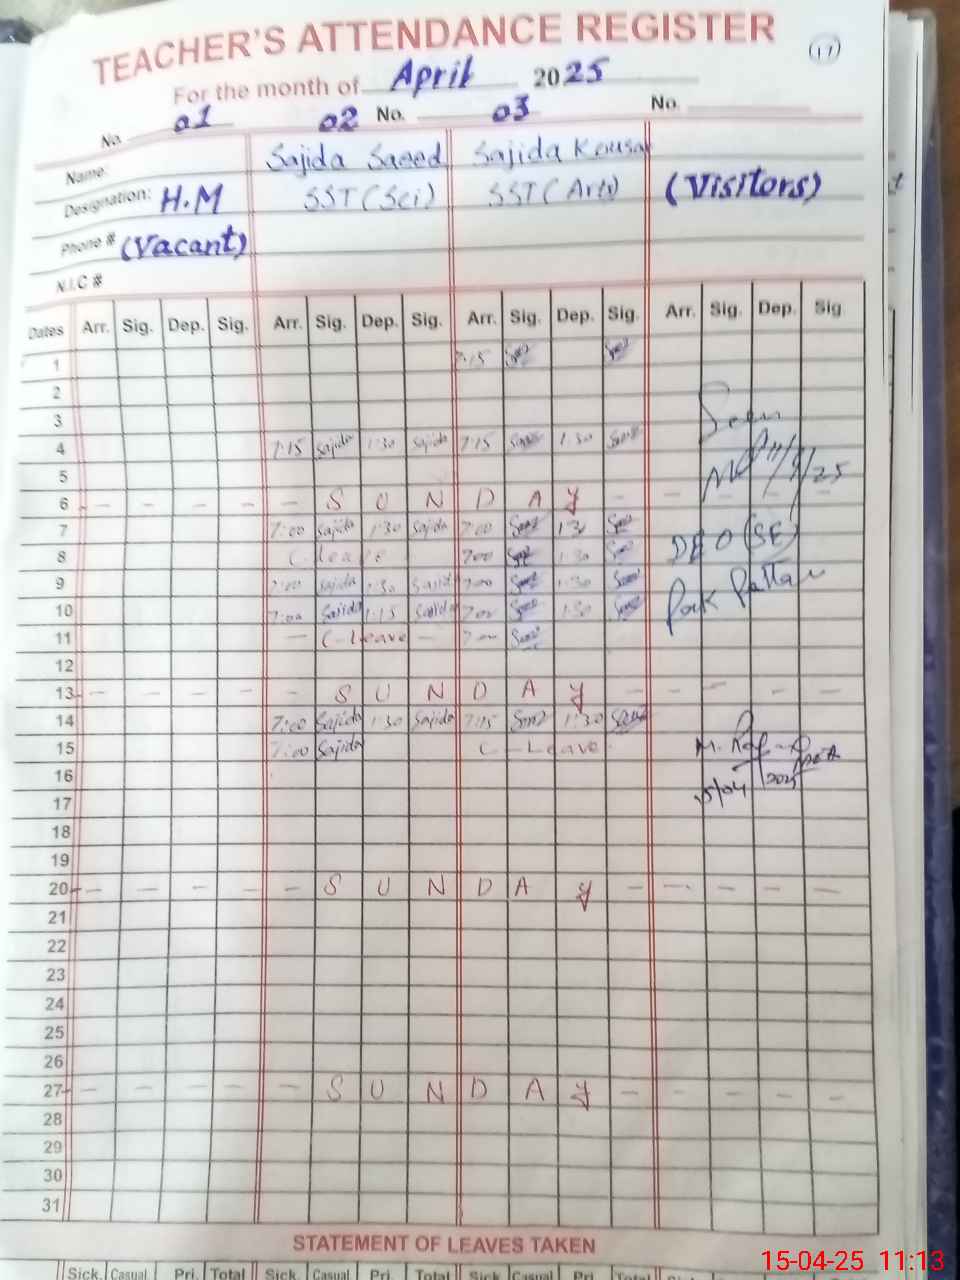 TEACHER'S ATTENDANCE REGISTER
(17)
For the month of April 2025
No. 01 02 No. 03 No.
Name: Sajida Saeed Sajida Kousar
Designation: H.M SST (Sci) SST (Arts) (Visitors)
Phone # (Vacant)
N.I.C #
Dates Arr. Sig. Dep. Sig. Arr. Sig. Dep. Sig. Arr. Sig. Dep. Sig. Arr. Sig. Dep. Sig
1 7:15
2
3 Seen
4 7:15 Sajida 1:30 Sajida 7:15 1:30
5 11/4/25
6 - - - - - S U N D A Y - - - - -
7 7:00 Sajida 1:30 Sajida 7:00 1:3 DEO (SE)
8 C-leave 7:00 1:30
9 7:00 Sajida 1:30 Sajida 7:00 1:30 Pak Pattan
10 7:00 Sajida 1:15 Sajida 7:00 1:30
11 - C-Leave - 7:00
12
13 - - - - - S U N D A Y - - - - -
14 7:00 Sajida 1:30 Sajida 7:15 1:30
15 7:00 Sajida C-Leave
16 15/04/2025
17
18
19
20 - - - - - S U N D A Y - - - - -
21
22
23
24
25
26
27 - - - - - S U N D A Y - - - - -
28
29
30
31
STATEMENT OF LEAVES TAKEN
Sick. Casual Pri. Total Sick. Casual Pri. Total Sick Casual Pri. Total
15-04-25 11:13